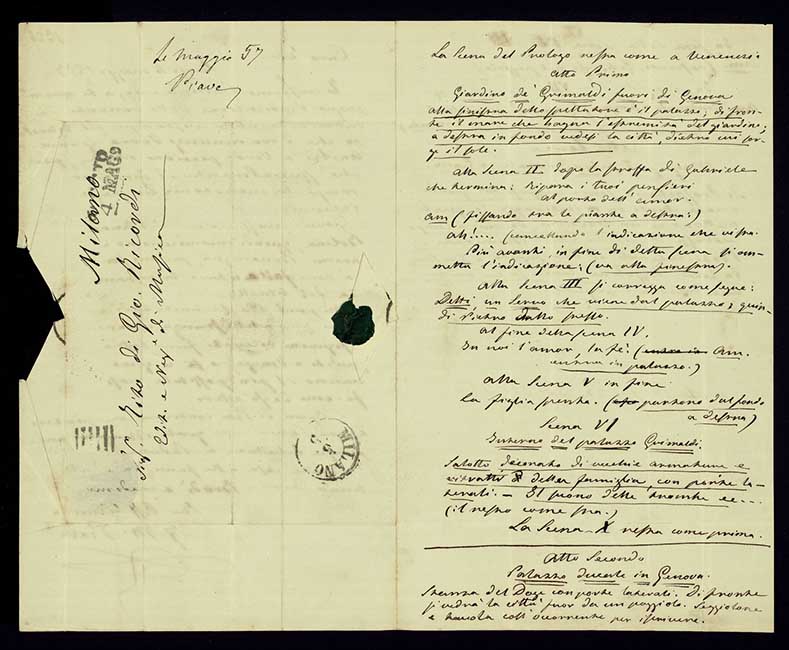 4 maggio 57
Piave
Milano
4 MAG
Sigr. Tito di Gio. Ricordi
Edit. e Negte di Musica
MILANO
La Scena del Prologo resta come a Venezia
Atto Primo
Giardino de' Grimaldi fuori di Genova
alla sinistra dello spettatore è il palazzo; di fron-
te il mare che bagna l'estremità del giardino;
a destra in fondo vedesi la città, dietro cui sor-
ge il sole.
Alla Scena II dopo la strofa di Gabriele
che termina: Ripara i tuoi pensieri
al porto dell'amor.
Am (fissando tra le piante a destra:)
Ah!.... (cancellando l'indicazione che resta.
Più avanti, in fine di detta scena si om-
metta l'indicazione: (va alla finestra).
Alla Scena III si corregga come segue:
Detti, un Servo che viene dal palazzo, quin-
di Pietro dallo stesso.
Al fine della scena IV.
In noi l'amor, la fè. (entra in Am.
entra in palazzo.)
Alla Scena V in fine
La figlia perduta. (partono dal fondo
a destra)
Scena VI
Interno del palazzo Grimaldi.
Salotto decorato di vecchie armature e
ritratti della famiglia, con porte la-
terali. - Il suono delle trombe ec...
(il resto come sta.)
La Scena X resta come prima.
Atto Secondo
Palazzo ducale in Genova.
Stanza del Doge con porte laterali. Di fronte
si vedrà la città fuor da un poggiolo. Seggiolone
e tavola coll'occorrente per iscrivere.